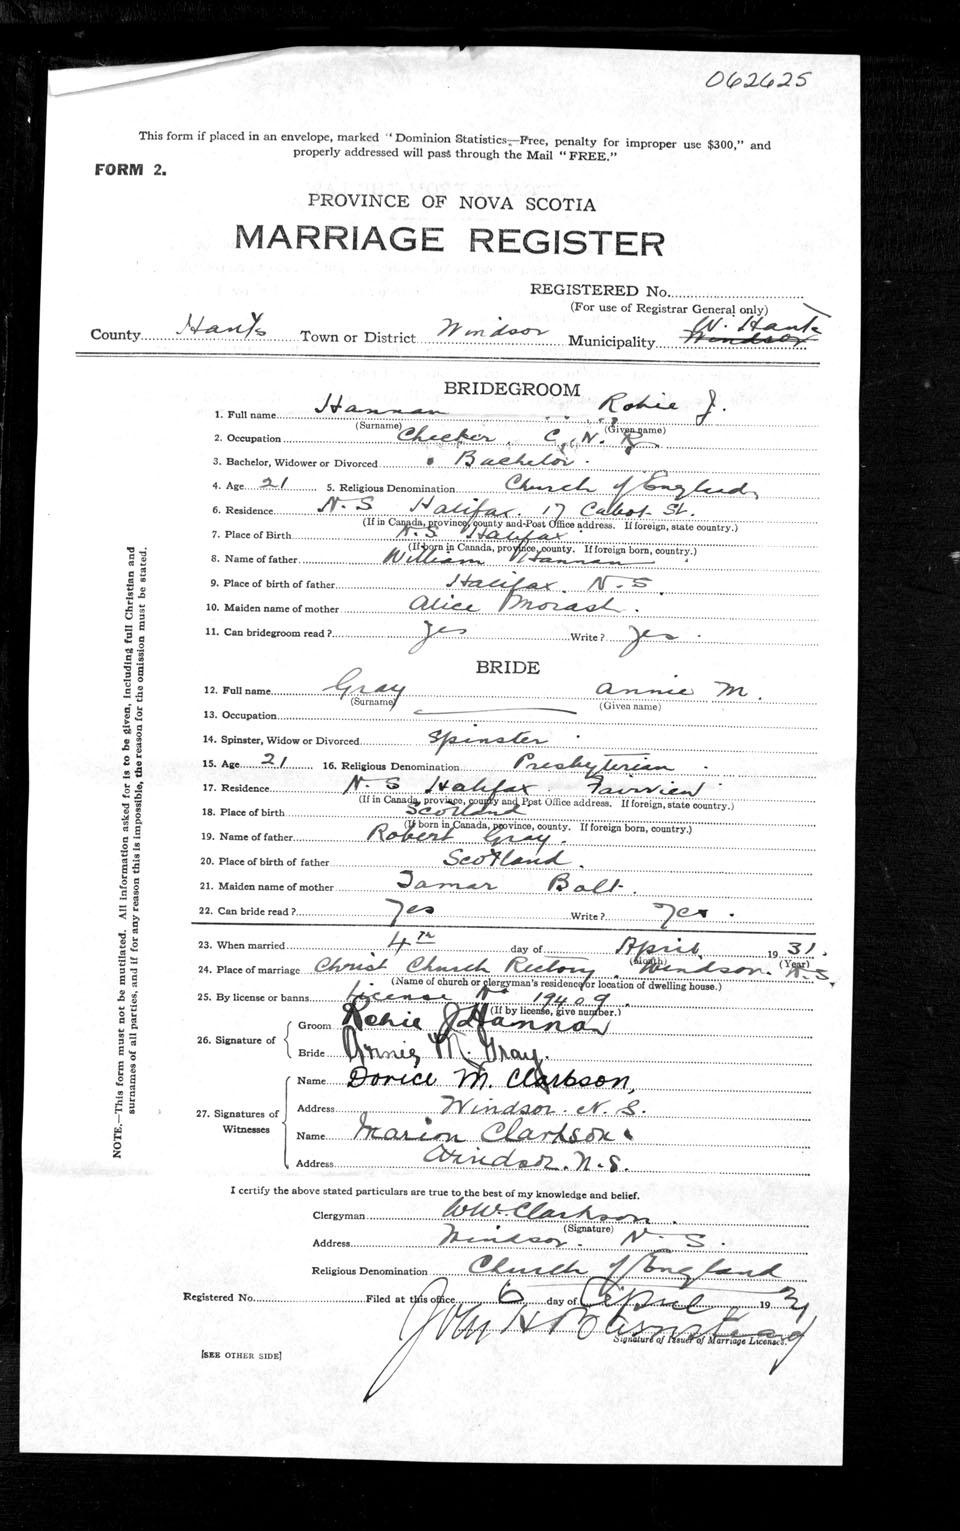 062625
This form if placed in an envelope, marked "Dominion Statistics—Free, penalty for improper use $300," and
properly addressed will pass through the Mail "FREE."
FORM 2.
PROVINCE OF NOVA SCOTIA
MARRIAGE REGISTER
REGISTERED No.
(For use of Registrar General only)
County Hants Town or District Windsor Municipality W. Hants Windsor
BRIDEGROOM
1. Full name Hannan Robie J.
(Surname) (Given name)
2. Occupation Checker C. N. R.
3. Bachelor, Widower or Divorced Bachelor.
4. Age 21 5. Religious Denomination Church of England
6. Residence N. S Halifax. 17 Cabot St.
(If in Canada, province, county and Post Office address. If foreign, state country.)
7. Place of Birth N. S Halifax
(If born in Canada, province, county. If foreign born, country.)
8. Name of father William Hannan
9. Place of birth of father Halifax N. S.
10. Maiden name of mother Alice Morash.
11. Can bridegroom read? yes Write? yes.
BRIDE
12. Full name Gray Annie M.
(Surname) (Given name)
13. Occupation
14. Spinster, Widow or Divorced Spinster
15. Age 21 16. Religious Denomination Presbyterian
17. Residence N. S Halifax Fairview
(If in Canada, province, county and Post Office address. If foreign, state country.)
18. Place of birth Scotland
(If born in Canada, province, county. If foreign born, country.)
19. Name of father Robert Gray.
20. Place of birth of father Scotland.
21. Maiden name of mother Tamar Bolt.
22. Can bride read? Yes Write? Yes.
23. When married 4th day of April 1931.
(Month) (Year)
24. Place of marriage Christ Church Rectory. Windsor. N. S.
(Name of church or clergyman's residence or location of dwelling house.)
25. By license or banns License No 19409.
(If by license, give number.)
26. Signature of
Groom Robie J Hannan
Bride Annie M. Gray.
27. Signatures of Witnesses
Name Dorice M. Clarkson,
Address Windsor. N. S.
Name Marion Clarkson.
Address Windsor. N. S.
I certify the above stated particulars are true to the best of my knowledge and belief.
Clergyman WW. Clarkson.
(Signature)
Address Windsor. N. S.
Religious Denomination Church of England
Registered No. Filed at this office 6 day of April 1931
John H
Signature of Issuer of Marriage Licenses.
[SEE OTHER SIDE]
NOTE.—This form must not be mutilated. All information asked for is to be given, including full Christian and
surnames of all parties, and if for any reason this is impossible, the reason for the omission must be stated.